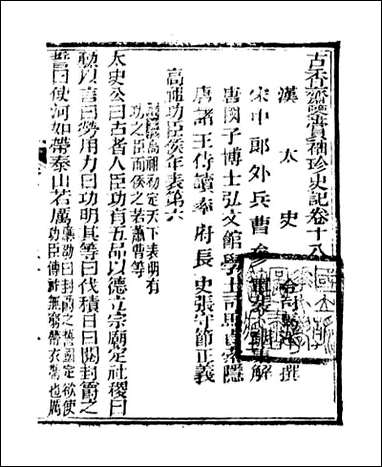 古香齋鑒賞袖珍史記卷十八
漢太史令司馬遷撰
宋中郎外兵曹參軍裴駰集解
唐國子博士弘文館學士司馬貞索隱
唐諸王侍讀率府長史張守節正義
高祖功臣侯年表第六
高祖初定天下表明有
功之臣而侯之若蕭曹等
太史公曰古者人臣功有五品以德立宗廟定社稷曰
勳以言曰勞用力曰功明其等曰伐積日曰閱封爵之
誓曰使河如帶泰山若厲
封爵之誓國家欲使
功臣傳祚無窮帶衣帶也厲